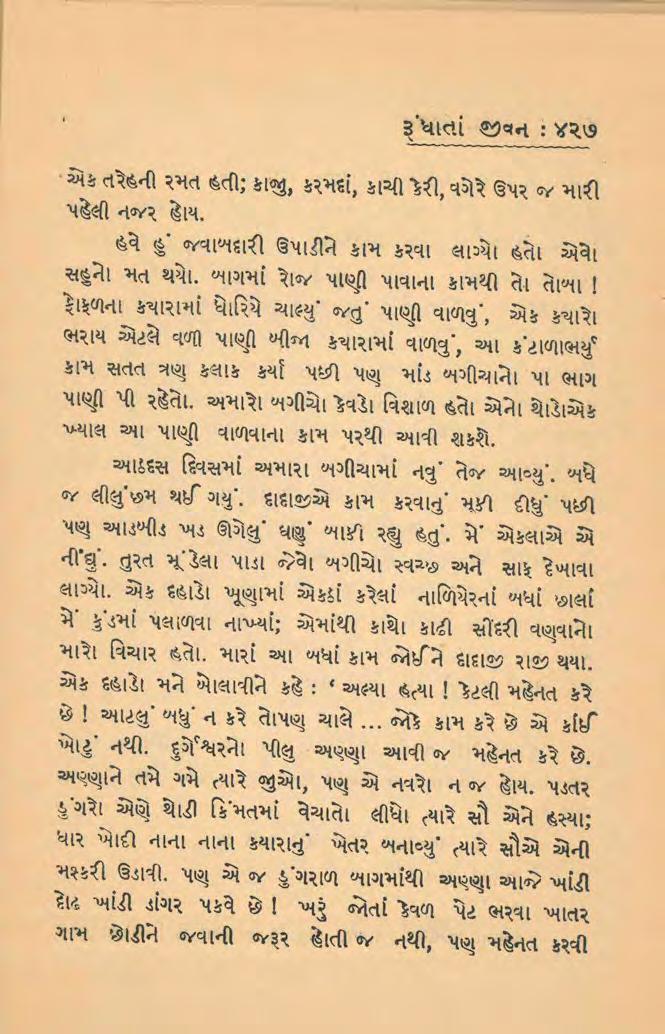 રૂંધાતાં જીવન : ૪૨૭
એક તરેહની રમત હતી; કાજુ, કરમદાં, કાચી કેરી, વગેરે ઉપર જ મારી
પહેલી નજર હોય.
હવે હું જવાબદારી ઉપાડીને કામ કરવા લાગ્યો હતો એવો
સહુનો મત થયો. બાગમાં રોજ પાણી પાવાના કામથી તો તોબા !
ફોફળના કયારામાં ધોરિયે ચાલ્યું જતું પાણી વાળવું, એક કયારો
ભરાય એટલે વળી પાણી બીજા કયારામાં વાળવું, આ કંટાળાભર્યું
કામ સતત ત્રણ કલાક કર્યા પછી પણ માંડ બગીચાનો પા ભાગ
પાણી પી રહેતો. અમારો બગીચો કેવડો વિશાળ હતો એનો થોડોએક
ખ્યાલ આ પાણી વાળવાના કામ પરથી આવી શકશે.
આઠદસ દિવસમાં અમારા બગીચામાં નવું તેજ આવ્યું. બધે
જ લીલુંછમ થઈ ગયું. દાદાજીએ કામ કરવાનું મૂકી દીધું પછી
પણ આડબીડ ખડ ઊગેલું ઘણું બાકી રહ્યુ હતું. મેં એકલાએ એ
નીંદ્યું. તુરત મૂંડેલા પાડા જેવો બગીચો સ્વચ્છ અને સાફ દેખાવા
લાગ્યો. એક દહાડો ખૂણામાં એકઠાં કરેલાં નાળિયેરનાં બધાં છાલાં
મેં કુંડમાં પલાળવા નાખ્યાં; એમાંથી કાથો કાઢી સીંદરી વણવાનો
મારો વિચાર હતો. મારાં આ બધાં કામ જોઈને દાદાજી રાજી થયા.
એક દહાડો મને બોલાવીને કહે : ‘ અલ્યા હત્યા ! કેટલી મહેનત કરે
છે ! આટલું બધું ન કરે તોપણ ચાલે ... જોકે કામ કરે છે એ કાંઈ
ખોટું નથી. દુર્ગેશ્વરનો પીલુ અણ્ણા આવી જ મહેનત કરે છે.
અણ્ણાને તમે ગમે ત્યારે જુઓ, પણ એ નવરો ન જ હોય. પડતર
ડુંગરો એણે થોડી કિંમતમાં વેચાતો લીધો ત્યારે સૌ એને હસ્યા;
ધાર ખોદી નાના નાના કયારાનું ખેતર બનાવ્યું ત્યારે સૌએ એની
મશ્કરી ઉડાવી. પણ એ જ ડુંગરાળ બાગમાંથી અણ્ણા આજે ખાંડી
દોઢ ખાંડી ડાંગર પકવે છે ! ખરૂં જોતાં કેવળ પેટ ભરવા ખાતર
ગામ છોડીને જવાની જરૂર હોતી જ નથી, પણ મહેનત કરવી